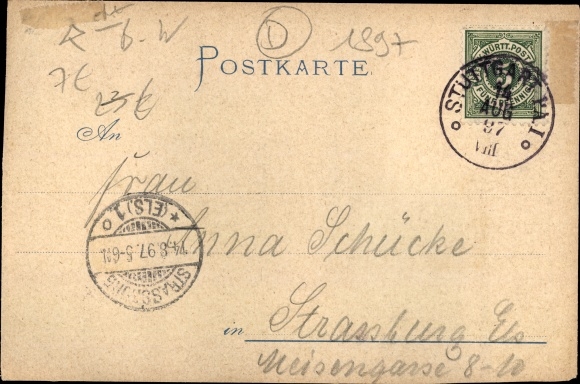 6-W
D
1897
7€
25€
POSTKARTE.
WÜRTT. POST
5
FÜNF PFENNIG
STUTTGART I.A.I
14
AUG
97
VIII
An
Frau
Anna Schücke
STRASSBURG (ELS.) 1
14.8.97. 5-6N.
in Strassburg Els
Meisengasse 8-10